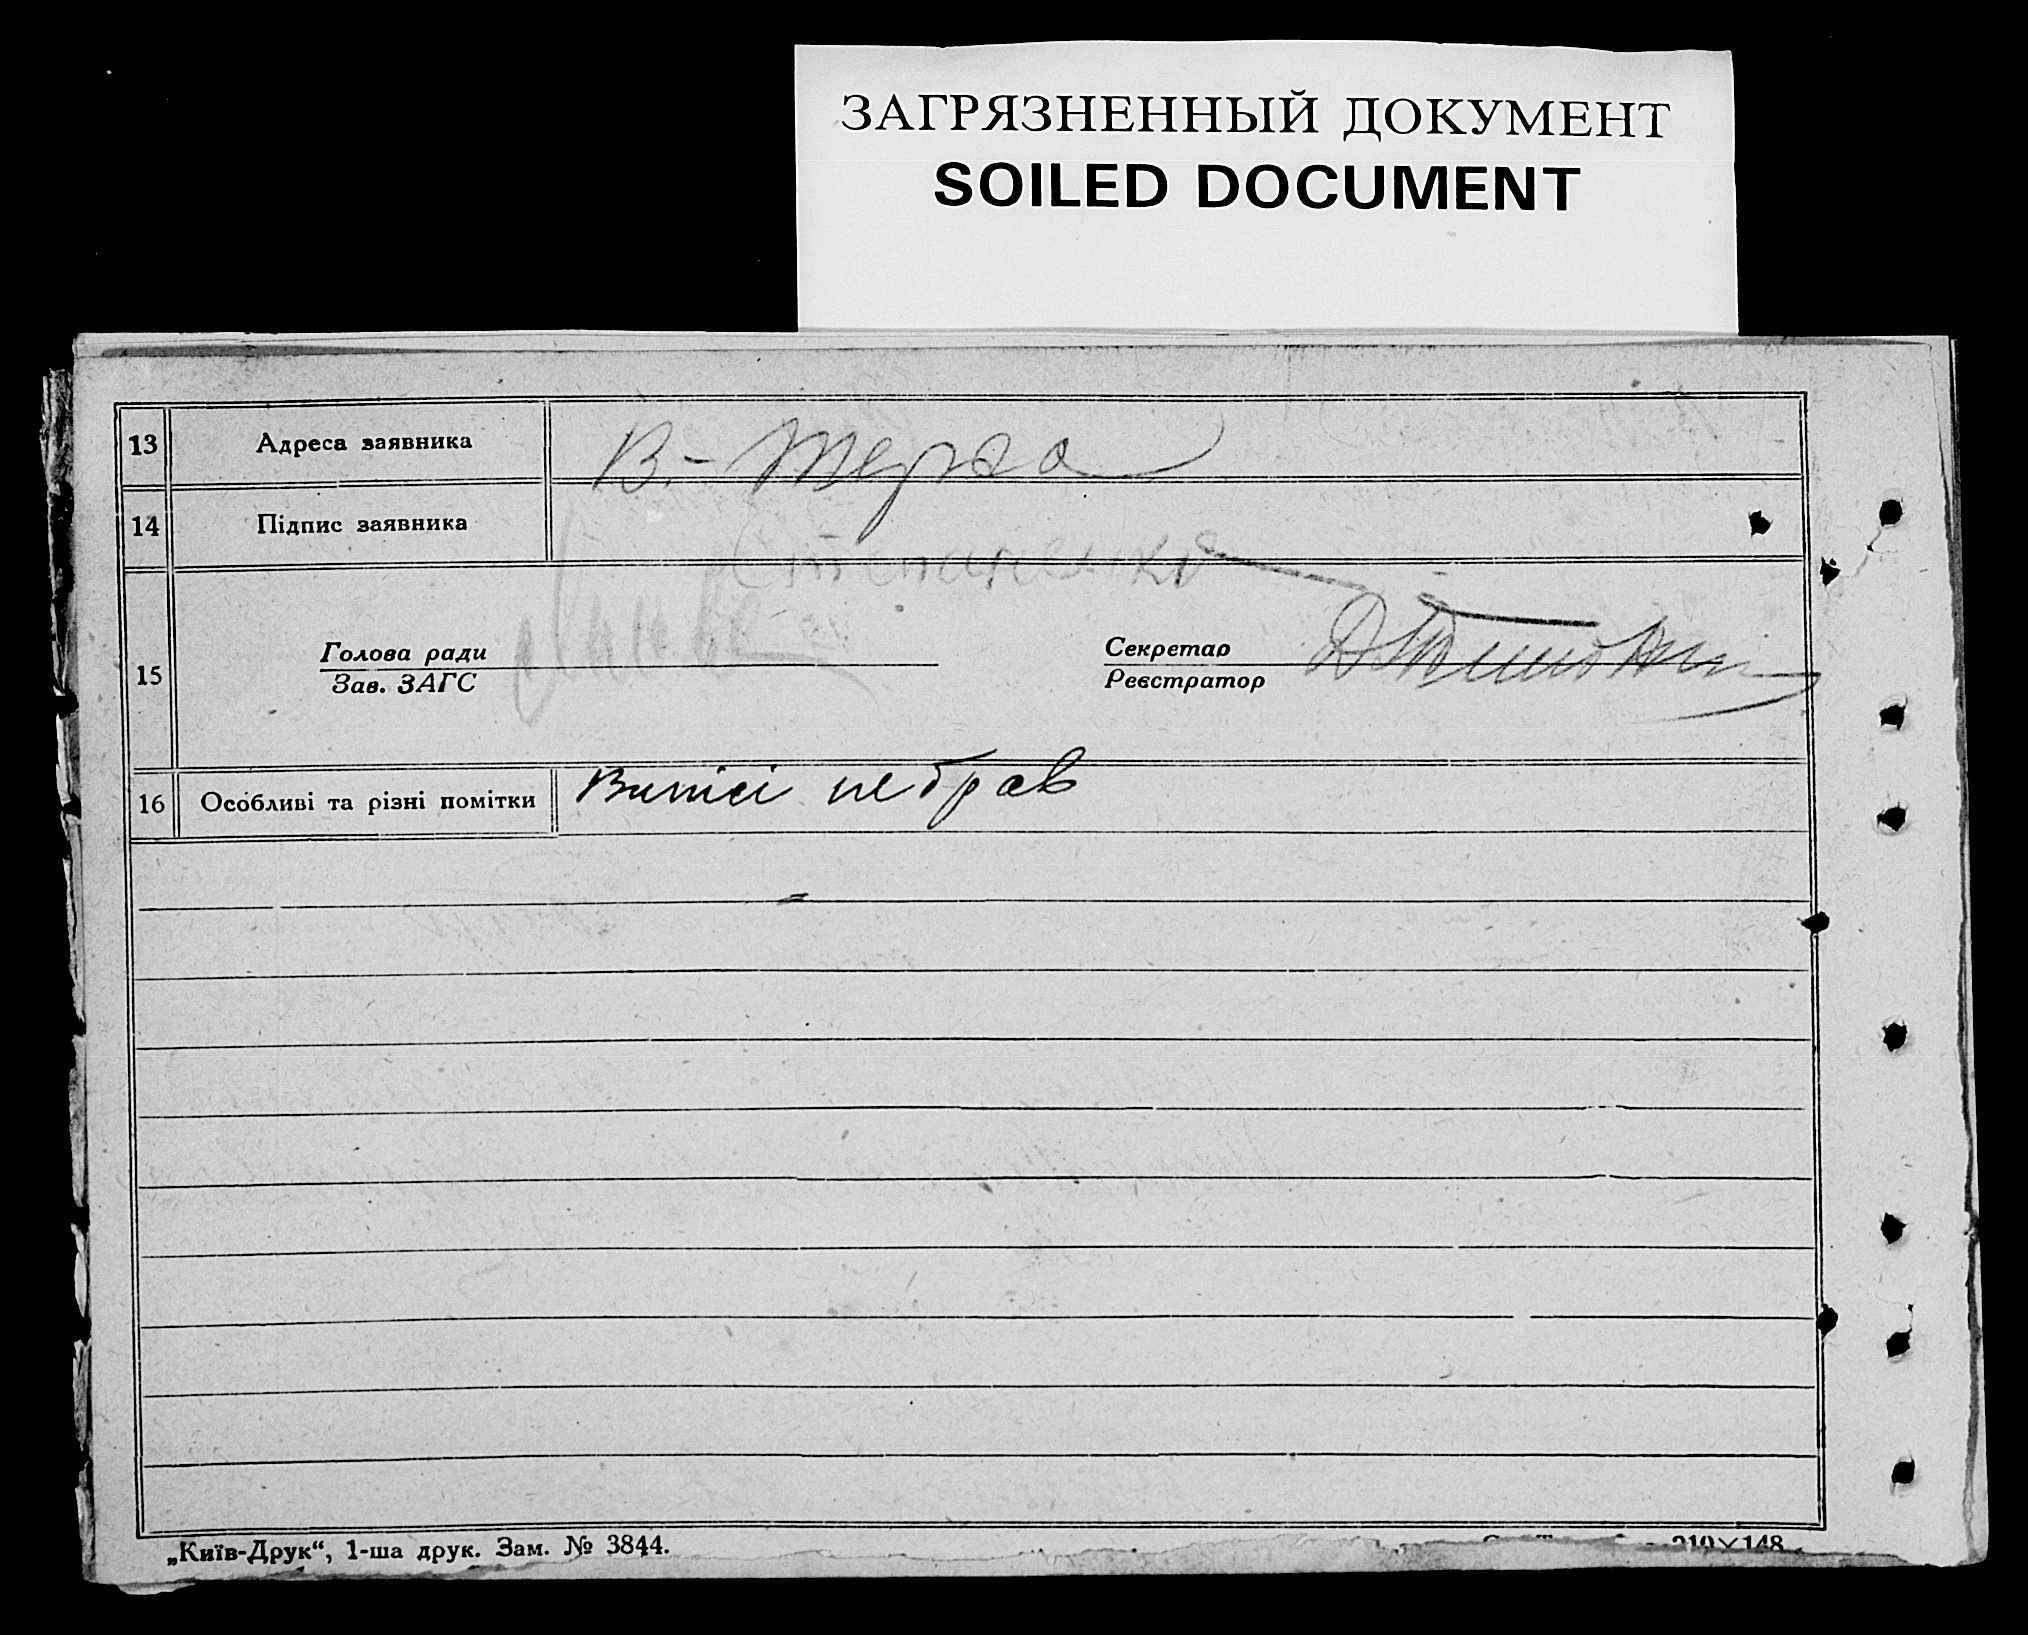 ЗАГРЯЗНЕННЫЙ ДОКУМЕНТ
SOILED DOCUMENT
13 Адреса заявника В.-
14 Підпис заявника Степаненко
15 Голова ради
Зав. ЗАГС
Секретар
Реєстратор
16 Особливі та різні помітки Витісі не брав
„Київ-Друк“, 1-ша друк. Зам. № 3844.
210×148